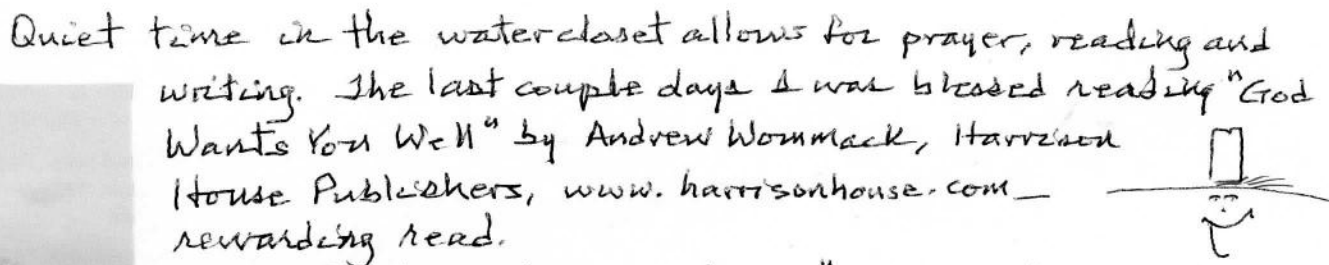 Quiet time in the watercloset allows for prayer, reading and
writing. The last couple days I was blessed reading "God
Wants You Well" by Andrew Wommack, Harrison
House Publishers, www.harrisonhouse.com_
rewarding read.